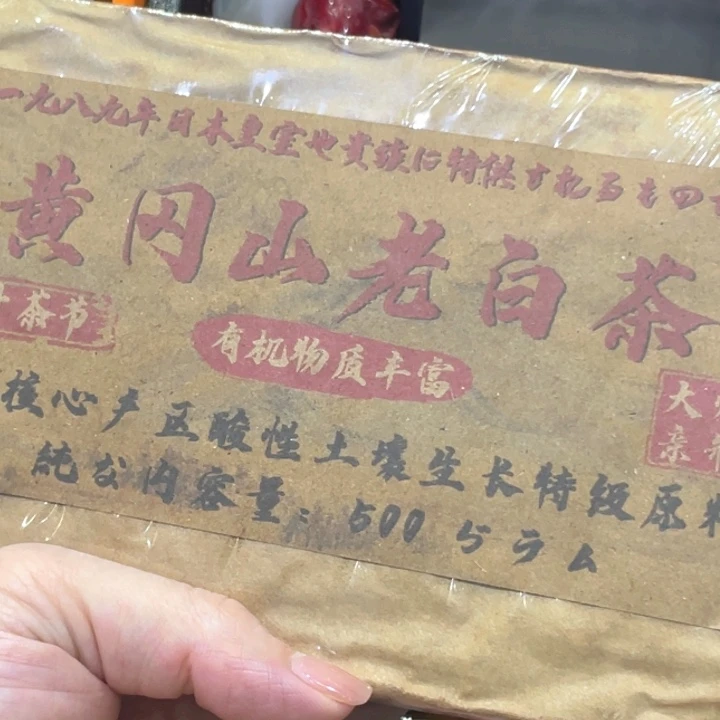 一九八九年日本皇室や貴族に特供するもの
黄冈山老白茶
茶节
有机物质丰富
大
亲
核心产区酸性土壤生长特级原料
純な内容量：500ぢラム